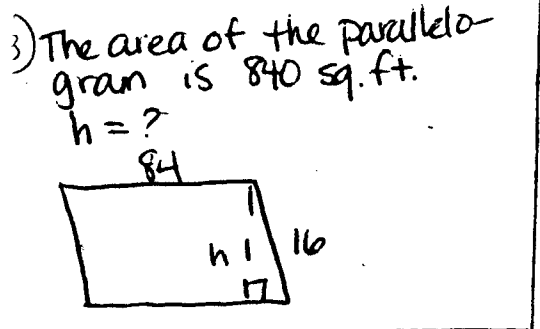 3) The area of the parallelo-
gram is 840 sq. ft.
h = ?
84
h
16